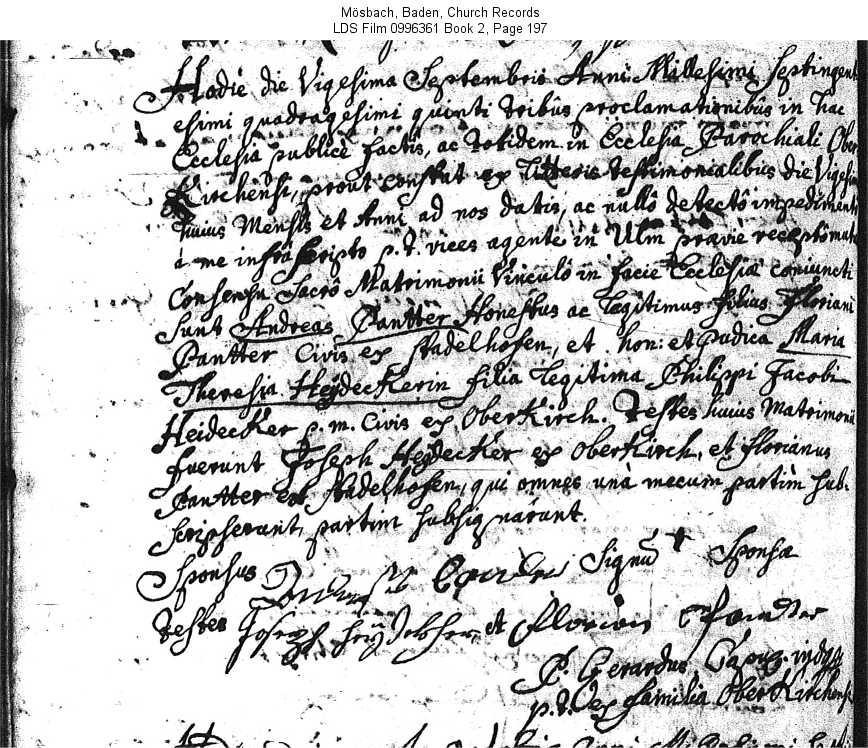 Mösbach, Baden, Church Records
LDS Film 0996361 Book 2, Page 197
Hodie die Vigesima Septembris Anni Millesimi Septingent
esimi quadragesimi quinti tribûs proclamationibûs in hac
Ecclesia publicè factis, ac totidem in Ecclesia Parochiali Ober
Kirchensi, prout constat ex Litteris testimonialibus die Vigesima
huius Mensis et Anni ad nos datis, ac nullô detectô impedimento
à me infrà scripto p.t. vices agente in Ulm praviè receptô mutuo
Consensu Sacrô Matrimonii Vinculô in facie Ecclesiæ coniuncti
Sunt Andreas Pantter Honestus ac Legitimus filius Floriani
Pantter Civis ex Stadelhofen, et hon: et Pudica Maria
Theresia Heydeckerin filia Legitima Philippi Jacobi
Heidecker p.m. Civis ex Oberkirch. Testes huius Matrimonii
fuerunt Joseph Heydecker ex Oberkirch, et Florianus
Pantter ex Stadelhofen, qui omnes unà mecum partim sub-
scripserunt, partim subsignârunt.
Sponsus Signũ + Sponsæ
testes Joseph et Florian
P. Gerardus Capuc.
p.t. ex familia Oberkirchens